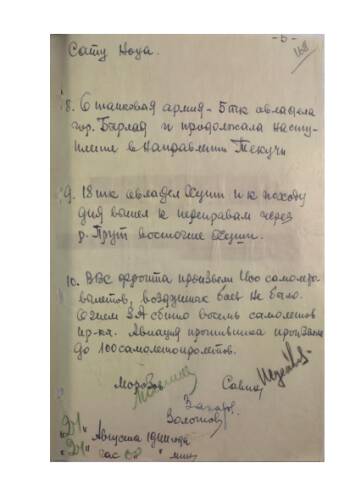 -5-
Сату Ноуа.
8. 6 танковая армия - 5тк овладела
гор. Бырлад и продолжала насту-
пление в направлении Текучи
9. 18тк овладел Хуши и к исходу
дня вышел к переправам через
р. Прут восточнее Хуши.
10. ВВС фронта произвели 400 самолето
вылетов, воздушных боев не было.
Огнем ЗА сбито восемь самолетов
пр-ка. Авиация противника произвела
до 100 самолетопролетов.
Захаров
Золотов
"24" Августа 1944 года
час мин